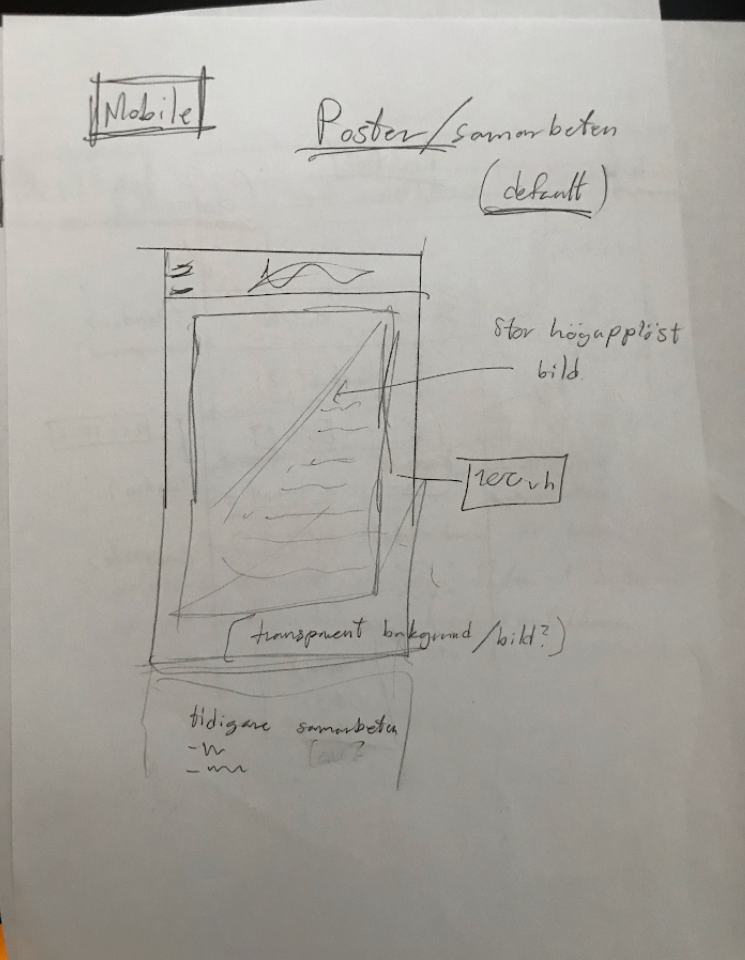 Mobile
Poster/samarbeten
(default)
Stor högupplöst
bild
100vh
(transparent bakgrund/bild?)
tidigare samarbeten